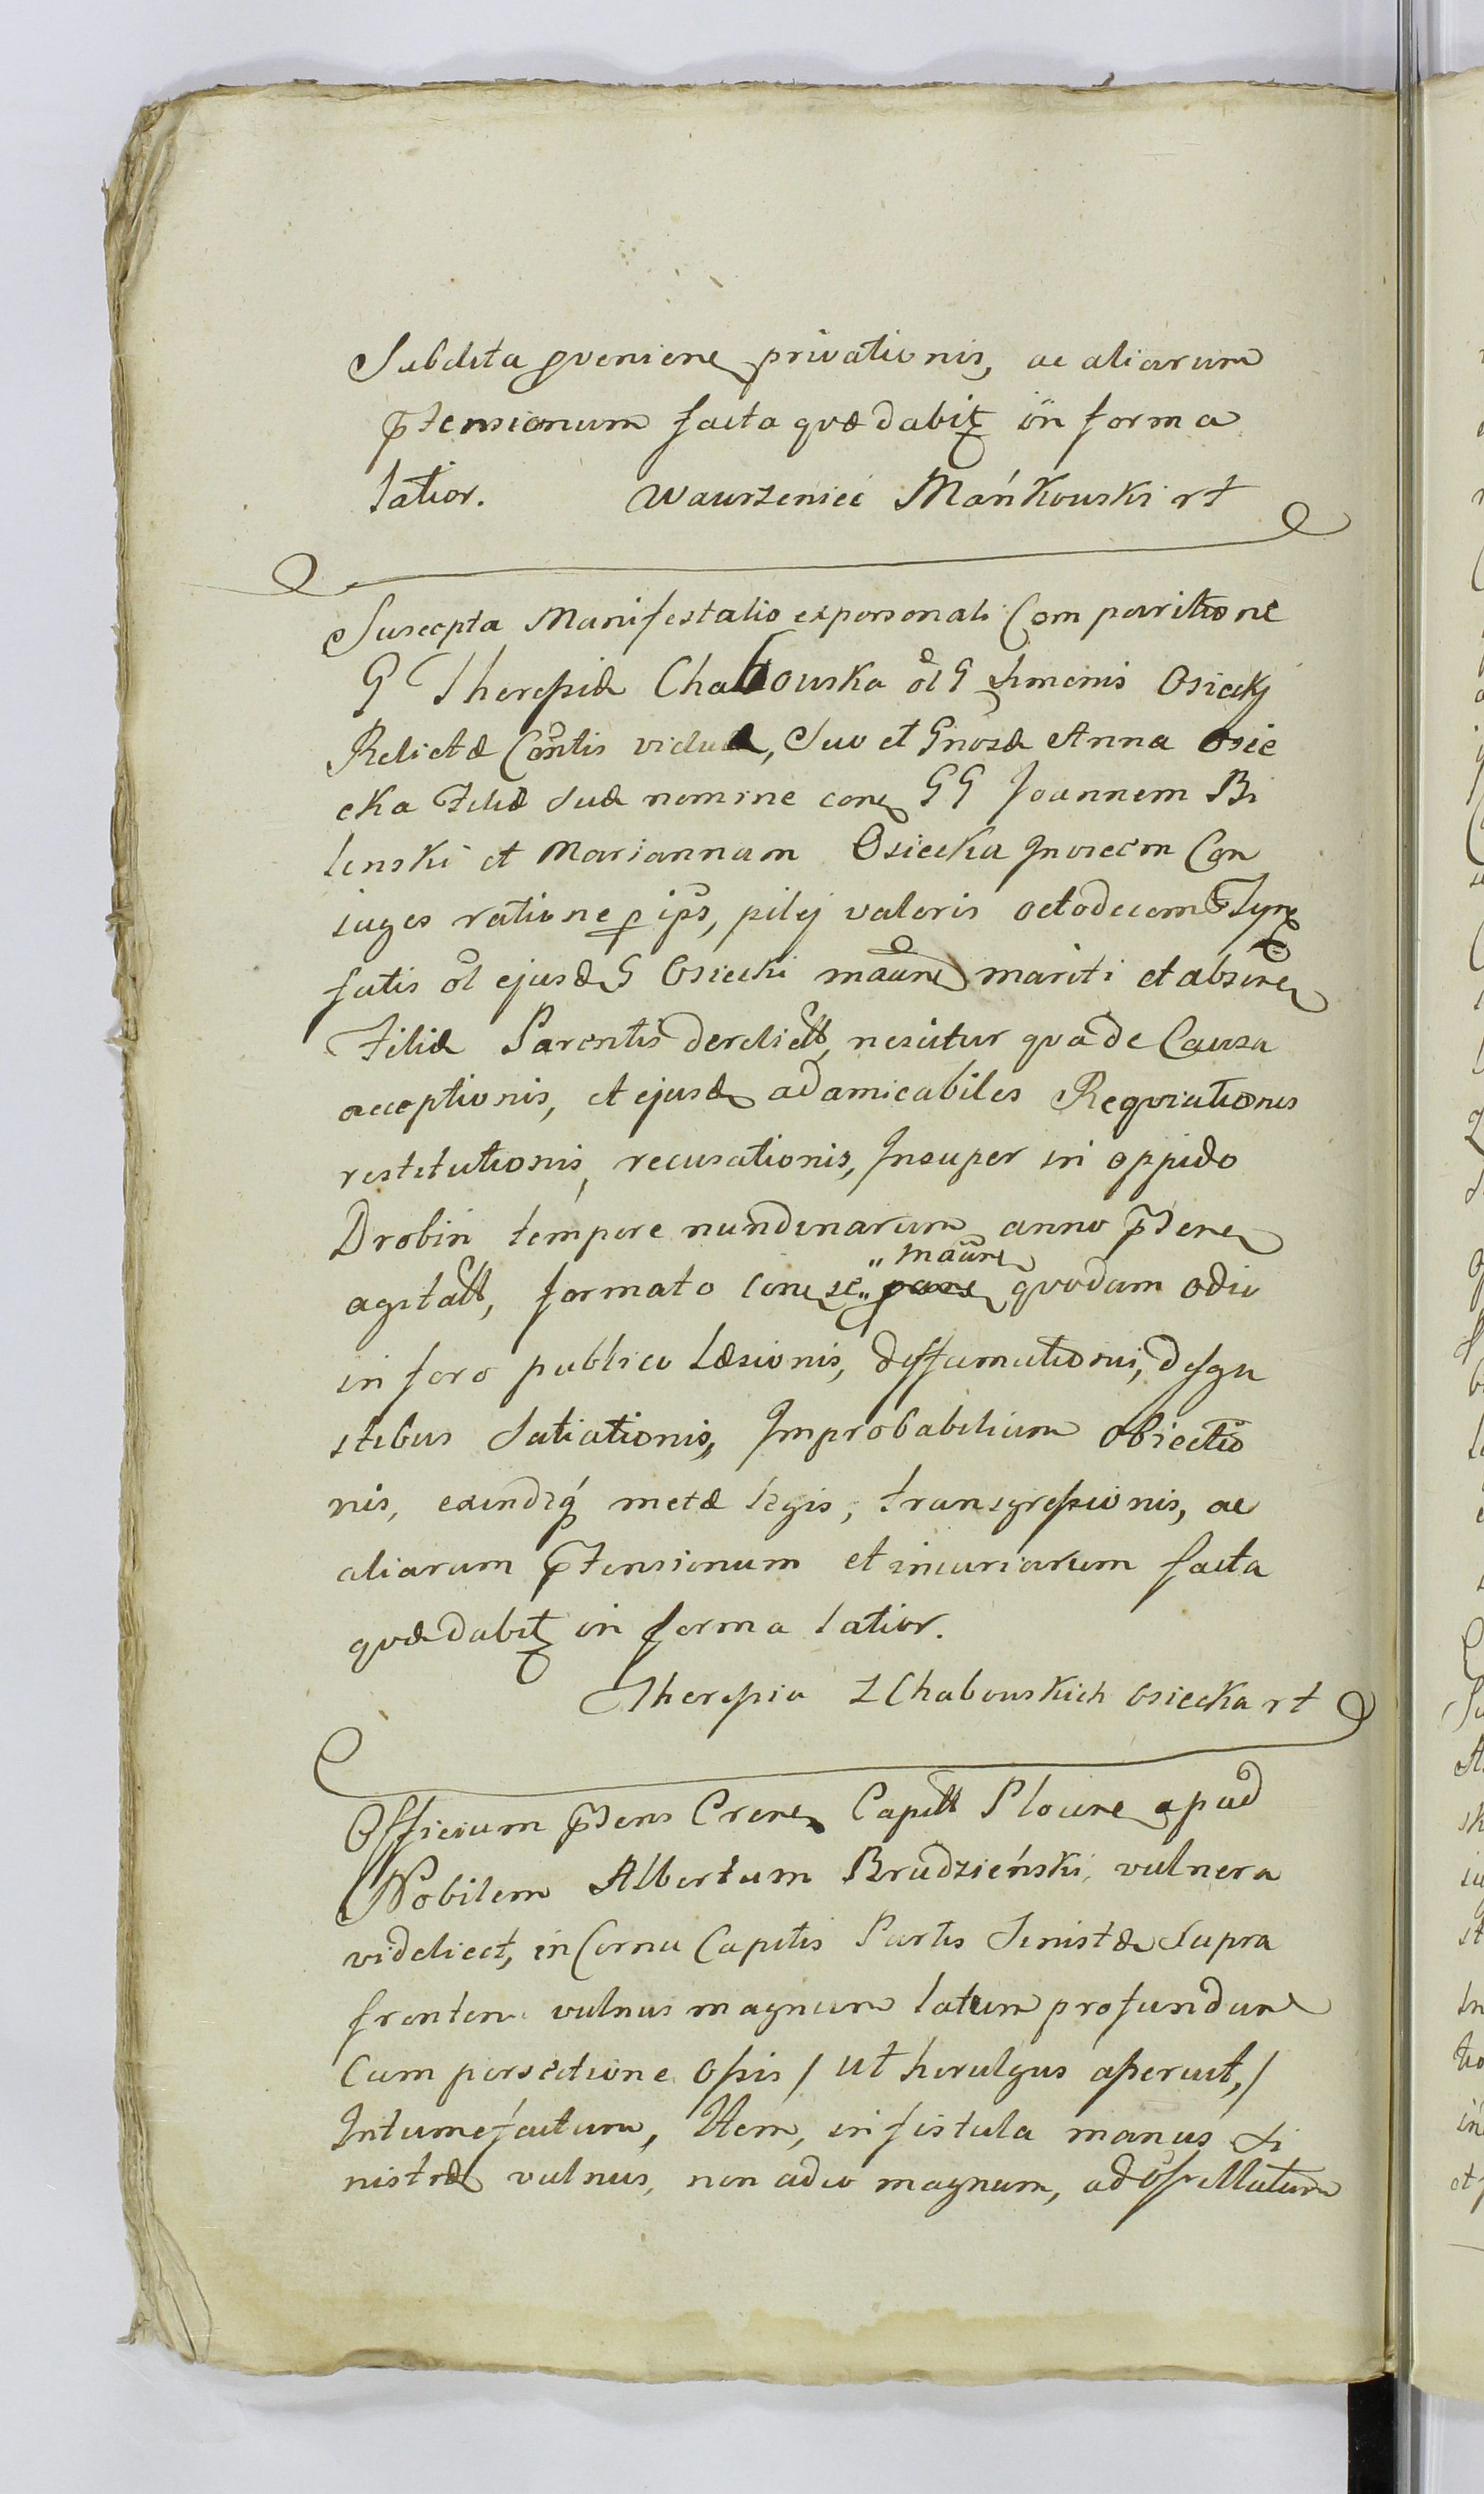 Subdita pveniene privationis, ac aliarum
ptensionum facta quæ dabitz in forma
latior. Wawrzeniec Mańkowski rt
Suscepta Manifestatio ex personali Comparitione
G Theressiæ Chabowska ol G Osiecky
Relictæ Consortis viduæ, Suo et Gnosæ Anna Osie
cka Filiæ suæ nomine con GG Joannem Bi
lenski et Mariannam Osiecka Invicem Con
iuges ratione p ips, pilej valoris octodecem
fatis ol ejusd G Osiecki mariti et
Filiæ Parentis derelict, nescitur qua de Causa
acceptionis, et ejusd ad amicabiles Requiationes
restitutionis, recusationis, Insuper in oppido
Drobin tempore nundinarum anno
agitatt, formato con se quodam odio
in foro publico Læsionis, diffamationis, disgu
stibus Satiationis, Improbabilium obiectio
nis, exindeq metæ legis, transgressionis, ac
aliarum ptensionum et iniuriarum facta
quæ dabitz in forma latior.
Theressia z Chabowskich Osiecka rt
Officium ptens Crene Capitt Plocine apud
Nobilem Albertum Brudzieński vulnera
videlicet, in Cornu Capitis Partis Sinistæ Supra
frontem vulnus magnum latum profundum
Cum persectione Ossis / ut hirulgus asseruit, /
Intumefactum, Item, in fistula manus Si
nistræ vulnus, non adeo magnum, ad